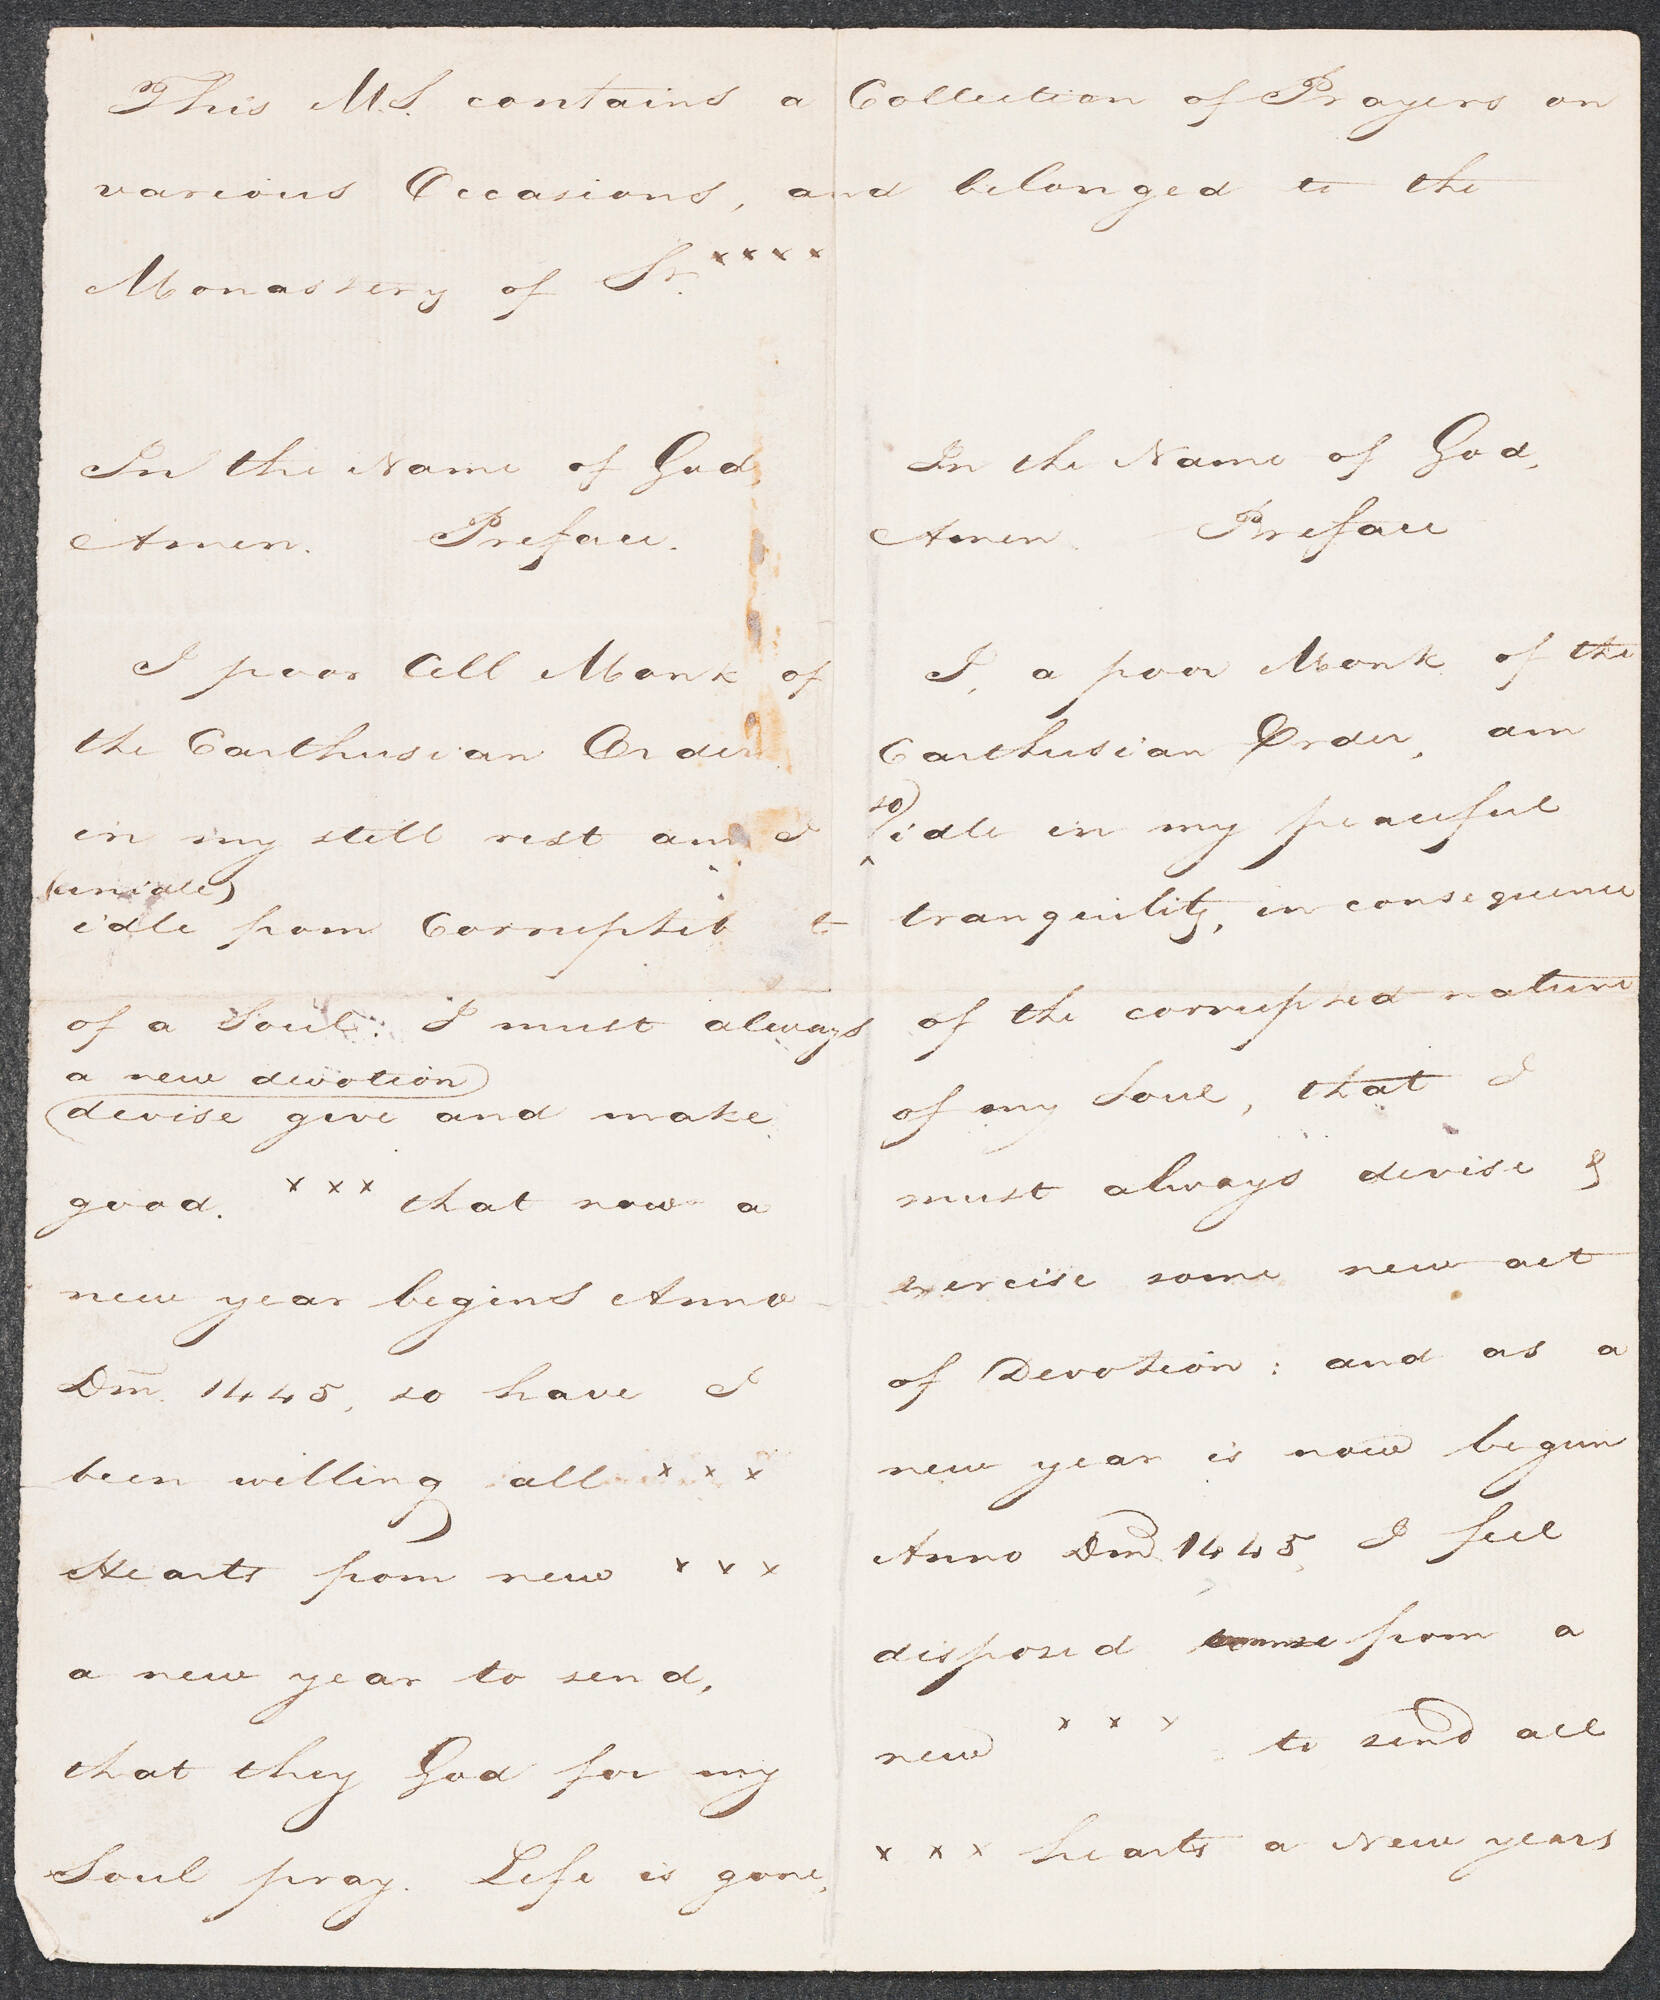 This M.S. contains a Collection of Prayers on
various Occasions, and belonged to the
Monastery of St. ××××
In the Name of God
Amen. Preface.
I poor Cell Monk of
the Carthusian Order
in my still rest am I
(unidle)
idle from Corruptib
of a Soul: I must always
a new devotion)
(devise give and make
good. ××× that now a
new year begins Anno
Dm̄. 1445, so have I
been willing all ×××
Hearts from new ×××
a new year to send,
that they God for my
Soul pray. Life is gone,
In the Name of God,
Amen. Preface
I, a poor Monk of the
Carthusian Order, am
so)
^ idle in my peaceful
tranquility, in consequence
of the corrupted nature
of my Soul, that I
must always devise &
exercise some new act
of Devotion: and as a
new year is now begun
Anno Dm 1445, I feel
disposed from a
new ××× to send all
××× hearts a New years